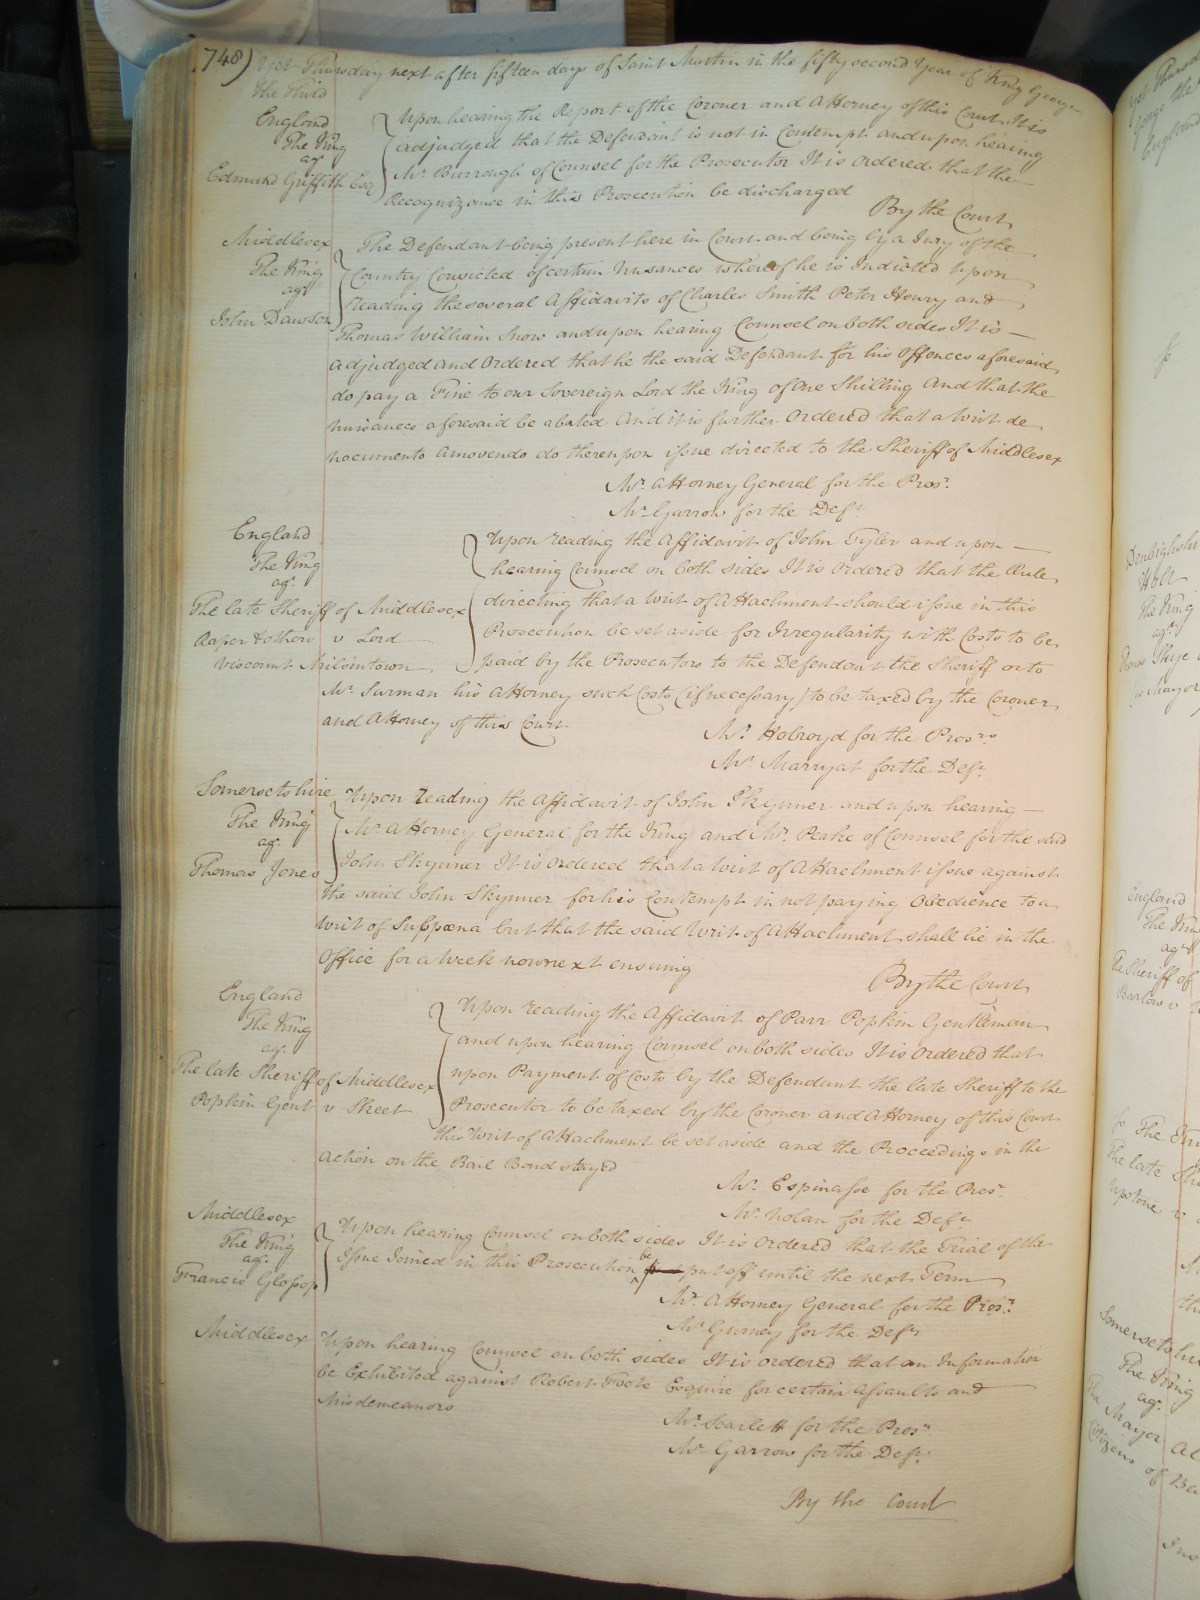 748) Yet Thursday next after fifteen days of Saint Martin in the fifty second Year of King George
the third
England
The King
agt
Edmund Griffith Esq
Upon hearing the Report of the Coroner and Attorney of this Court It is
adjudged that the Defendant is not in Contempt and upon hearing
Mr. Burrough of Counsel for the Prosecutor It is Ordered that the
Recognizance in this Prosecution be discharged
By the Court
Middlesex
The King
agt
John Dawson
The Defendant being present here in Court and being by a Jury of the
Country Convicted of certain Nusances whereof he is Indicted Upon
reading the several Affidavits of Charles Smith Peter Henry and
Thomas William Snow and upon hearing Counsel on both sides It is
adjudged and Ordered that he the said Defendant for his Offences aforesaid
do pay a Fine to our Sovereign Lord the King of One Shilling And that the
nuisances aforesaid be abated And it is further Ordered that a Writ de
nocumento amovendo do thereupon issue directed to the Sheriff of Middlesex
Mr. Attorney General for the Prosr.
Mr. Garrow for the Deft.
England
The King
agt.
The late Sheriff of Middlesex
Raper & others v Lord
Viscount Milsintown
Upon reading the Affidavit of John Tyler and upon
hearing Counsel on both sides It is Ordered that the Rule
directing that a Writ of Attachment should issue in this
Prosecution be set aside for Irregularity with Costs to be
paid by the Prosecutors to the Defendant the Sheriff or to
Mr. Surman his Attorney such Costs (if necessary) to be taxed by the Coroner
and Attorney of this Court.
Mr. Holroyd for the Prosrs.
Mr. Marryat for the Deft.
Somersetshire
The King
agt.
Thomas Jones
Upon reading the Affidavit of John Skynner and upon hearing
Mr. Attorney General for the King and Mr. Peake of Counsel for the said
John Skynner It is Ordered that a Writ of Attachment issue against
the said John Skynner for his Contempt in not paying Obedience to a
Writ of Subpœna but that the said Writ of Attachment shall lie in the
Office for a Week now next ensuing
By the Court
England
The King
agt.
The late Sheriff of Middlesex
Popkin Gent v Street
Upon reading the Affidavit of Parr Popkin Gentleman
and upon hearing Counsel on both sides It is Ordered that
upon Payment of Costs by the Defendant the late Sheriff to the
Prosecutor to be taxed by the Coroner and Attorney of this Court
this Writ of Attachment be set aside and the Proceedings in the
action on the Bail Bond stayed
Mr. Espinasse for the Prosr.
Mr. Nolan for the Deft.
Middlesex
The King
agt.
Francis Glossop
Upon hearing Counsel on both sides It is Ordered that the Trial of the
Issue Joined in this Prosecution be put off until the next Term
Mr. Attorney General for the Prosr.
Mr. Gurney for the Deft.
Middlesex
Upon hearing Counsel on both sides It is ordered that an Information
be Exhibited against Robert Foote Esquire for certain Assaults and
Misdemeanors
Mr. Scarlett for the Prosr.
Mr. Garrow for the Deft.
By the Court
England
Denbighshi
Holt
The King
agt.
England
The Kin
agt.
The Sheriff of
Barlow v
The late She
Somersetshi
The King
agt.
The Mayor Al
Citizens of Ba